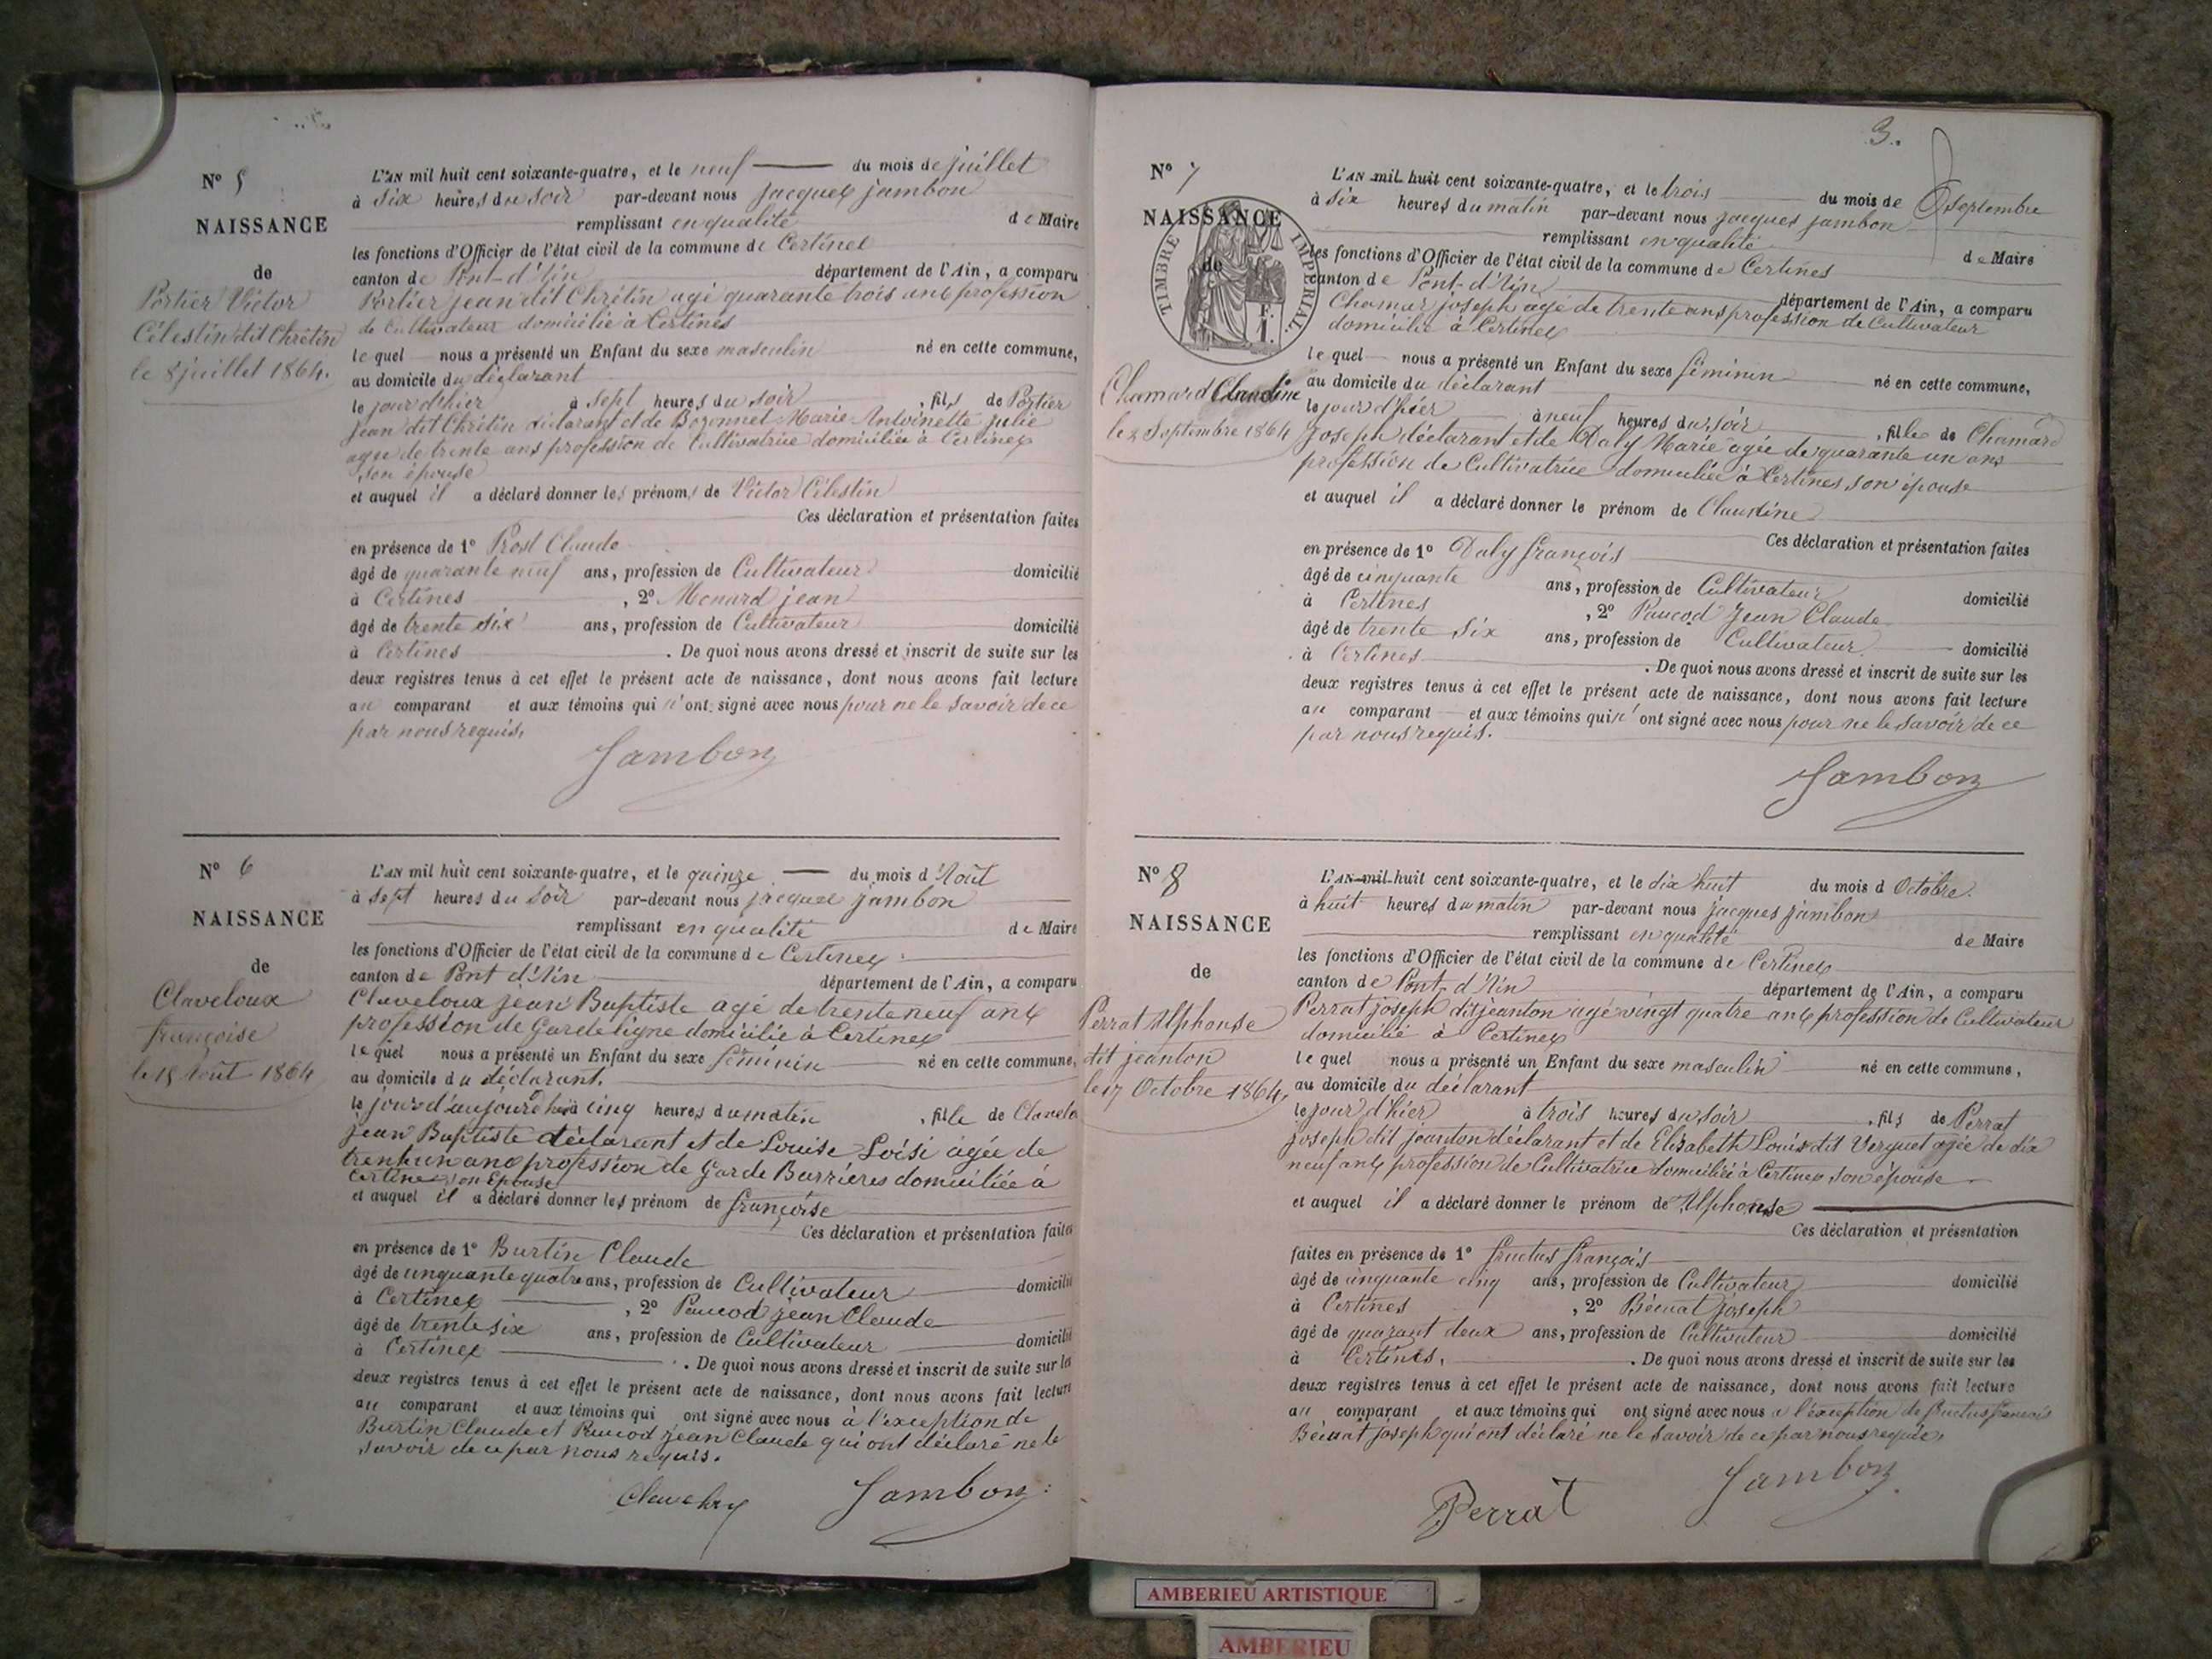 N° 5
NAISSANCE
de
Portier Victor
Célestin dit Chrétin
le 8 juillet 1864.
L'AN mil huit cent soixante-quatre, et le neuf du mois de juillet
à six heures du soir par-devant nous jacques jambon
remplissant en qualité de Maire
les fonctions d'Officier de l'état civil de la commune de Certines
canton de Pont-d'Ain département de l'Ain, a comparu
Portier jean dit Chrétin agé quarante trois ans profession
de Cultivateur domicilié à Certines
lequel nous a présenté un Enfant du sexe masculin né en cette commune,
au domicile du déclarant
le jour d'hier à sept heures du soir, fils de Portier
jean dit Chrétin déclarant et de Bozonnet Marie Antoinette julie
agée de trente ans profession de Cultivatrice domiciliée à Certines
son épouse
et auquel il a déclaré donner les prénoms de Victor Célestin
Ces déclaration et présentation faites
en présence de 1° Prost Claude
âgé de quarante neuf ans, profession de Cultivateur domicilié
à Certines, 2° Monard jean
âgé de trente six ans, profession de Cultivateur domicilié
à Certines. De quoi nous avons dressé et inscrit de suite sur les
deux registres tenus à cet effet le présent acte de naissance, dont nous avons fait lecture
au comparant et aux témoins qui n'ont signé avec nous pour ne le savoir de ce
par nous requis.
Jambon
N° 6
NAISSANCE
de
Claveloux
françoise
le 15 Août 1864
L'AN mil huit cent soixante-quatre, et le quinze du mois d'Août
à sept heures du soir par-devant nous jacques jambon
remplissant en qualité de Maire
les fonctions d'Officier de l'état civil de la commune de Certines
canton de Pont d'Ain département de l'Ain, a comparu
Claveloux jean Baptiste agé de trente neuf ans
profession de Garde ligne domicilié à Certines
lequel nous a présenté un Enfant du sexe féminin né en cette commune,
au domicile du déclarant.
le jour d'aujourd'hui à cinq heures du matin, fille de Clavelo
jean Baptiste déclarant et de Louise Loisi agée de
trente un ans profession de Garde Barrières domiciliée à
Certines son Epouse
et auquel il a déclaré donner les prénom de françoise
Ces déclaration et présentation faites
en présence de 1° Burtin Claude
âgé de cinquante quatre ans, profession de Cultivateur domicilié
à Certines, 2° Paucod jean Claude
âgé de trente six ans, profession de Cultivateur domicilié
à Certines. De quoi nous avons dressé et inscrit de suite sur les
deux registres tenus à cet effet le présent acte de naissance, dont nous avons fait lecture
au comparant et aux témoins qui ont signé avec nous à l'exception de
Burtin Claude et Paucod jean Claude qui ont déclaré ne le
savoir de ce par nous requis.
Jambon
3.
N° 7
NAISSANCE
de
TIMBRE IMPERIAL.
Chamard Claudine
le 2 Septembre 1864
L'AN mil huit cent soixante-quatre, et le trois du mois de septembre
à six heures du matin par-devant nous jacques jambon
remplissant en qualité de Maire
les fonctions d'Officier de l'état civil de la commune de Certines
canton de Pont-d'Ain département de l'Ain, a comparu
Chamar joseph agé de trente ans profession de Cultivateur
domicilié à Certines
lequel nous a présenté un Enfant du sexe féminin né en cette commune,
au domicile du déclarant
le jour d'hier à neuf heures du soir, fille de Chamard
joseph déclarant et de Daly Marie agée de quarante un ans
profession de Cultivatrice domiciliée à Certines son épouse
et auquel il a déclaré donner le prénom de Claudine
Ces déclaration et présentation faites
en présence de 1° Daly françois
âgé de cinquante ans, profession de Cultivateur domicilié
à Certines, 2° Paucod Jean Claude
âgé de trente six ans, profession de Cultivateur domicilié
à Certines. De quoi nous avons dressé et inscrit de suite sur les
deux registres tenus à cet effet le présent acte de naissance, dont nous avons fait lecture
au comparant et aux témoins qui n'ont signé avec nous pour ne le savoir de ce
par nous requis.
Jambon
N° 8
NAISSANCE
de
Perrat Alphonse
dit jeanton
le 17 Octobre 1864.
L'AN mil huit cent soixante-quatre, et le dix huit du mois d Octobre
à huit heures du matin par-devant nous jacques jambon
remplissant en qualité de Maire
les fonctions d'Officier de l'état civil de la commune de Certines
canton de Pont-d'Ain département de l'Ain, a comparu
Perrat joseph dit jeanton agé vingt quatre ans profession de Cultivateur
domicilié à Certines
lequel nous a présenté un Enfant du sexe masculin né en cette commune,
au domicile du déclarant
le jour d'hier à trois heures du soir, fils de Perrat
joseph dit jeanton déclarant et de Elisabeth Louis dit Verguet agée de dix
neuf ans profession de Cultivatrice domiciliée à Certines son épouse
et auquel il a déclaré donner le prénom de Alphonse
Ces déclaration et présentation
faites en présence de 1° fructus françois
âgé de cinquante cinq ans, profession de Cultivateur domicilié
à Certines, 2° Bécuat joseph
âgé de quarant deux ans, profession de Cultivateur domicilié
à Certines. De quoi nous avons dressé et inscrit de suite sur les
deux registres tenus à cet effet le présent acte de naissance, dont nous avons fait lecture
au comparant et aux témoins qui ont signé avec nous a l'exception de fructus françois
Bécuat joseph qui ont déclaré ne le savoir de ce par nous requis.
Perrat
Jambon
AMBERIEU ARTISTIQUE
AMBERIEU